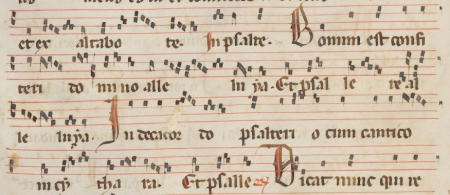 et ex altabo te. In psalte. Bonum est confi
teri do mino alle lu ya. Et psal le re al
le lu ya. In decacor do psalteri o cum cantico
in cy tha ra. Et psalle. Dicat nunc qui re